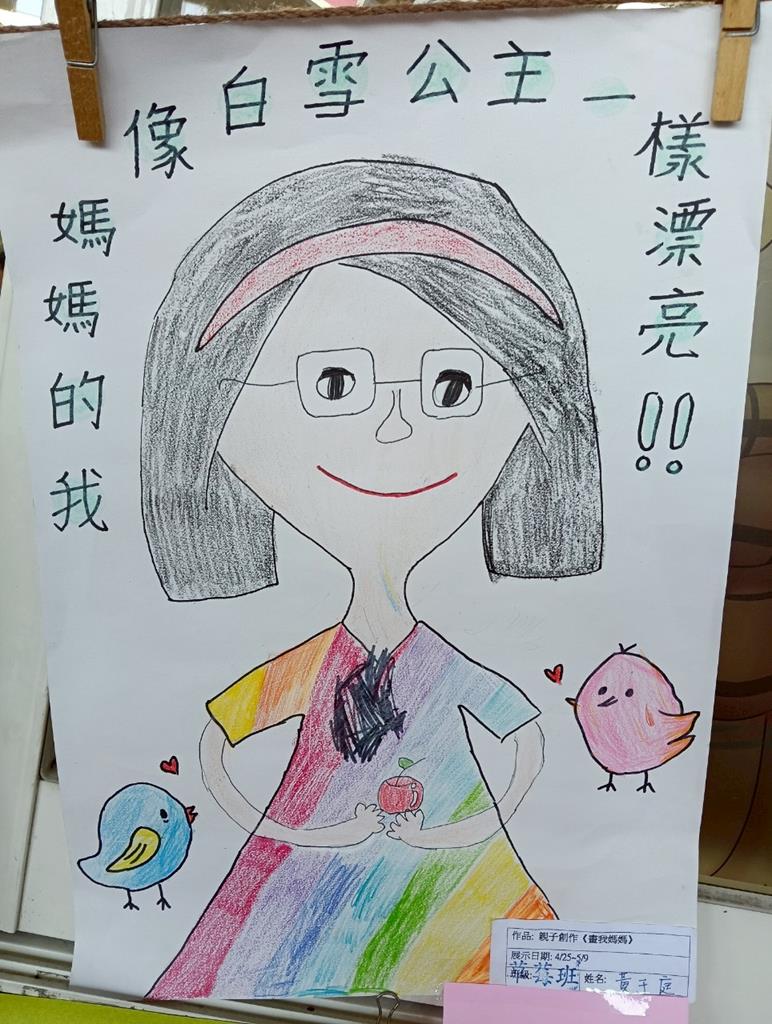 我的媽媽
像白雪公主一
樣漂亮!!
作品: 親子創作《畫我媽媽》
展示日期: 4/25~5/9
班級: 班 姓名: 黃于庭